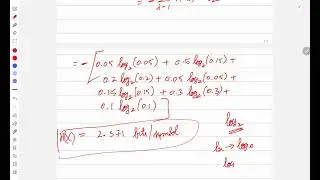 i=1
= - [ 0.05 log₂(0.05) + 0.15 log₂(0.15) +
0.2 log₂(0.2) + 0.05 log₂(0.05) +
0.15 log₂(0.15) + 0.3 log₂(0.3) +
0.1 log₂(0.1) ]
H(X) = 2.571 bits/symbol
log₂
ln → log e
log